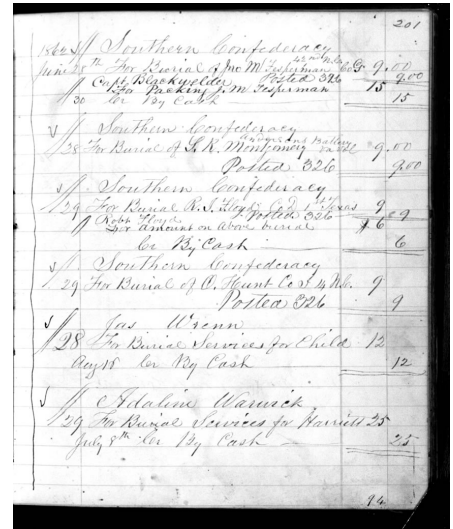 201
1862 Southern Confederacy
June 28th For Burial of Jno M Tesperman Co G 4th N.C. 9.00
Capt. Blackwelder Posted 326 9.00
For Packing J. M. Tesperman 15
30 Cr By Cash 15
Southern Confederacy
28 For Burial of S. R. Montgomery Battery 9.00
Posted 326 9.00
Southern Confederacy
29 For Burial R. J. Floyd Co 1st Texas 9
Robt Floyd Posted 326 9
For amount on above burial 6
Cr By Cash 6
Southern Confederacy
29 For Burial of C. Hunt Co I 4 N.C. 9
Posted 326 9
Jas Wrenn
28 For Burial Services for Child 12
Aug 18 Cr By Cash 12
Adaline Warwick
29 For Burial Services for Harriett 25
July 8th Cr By Cash 25
94